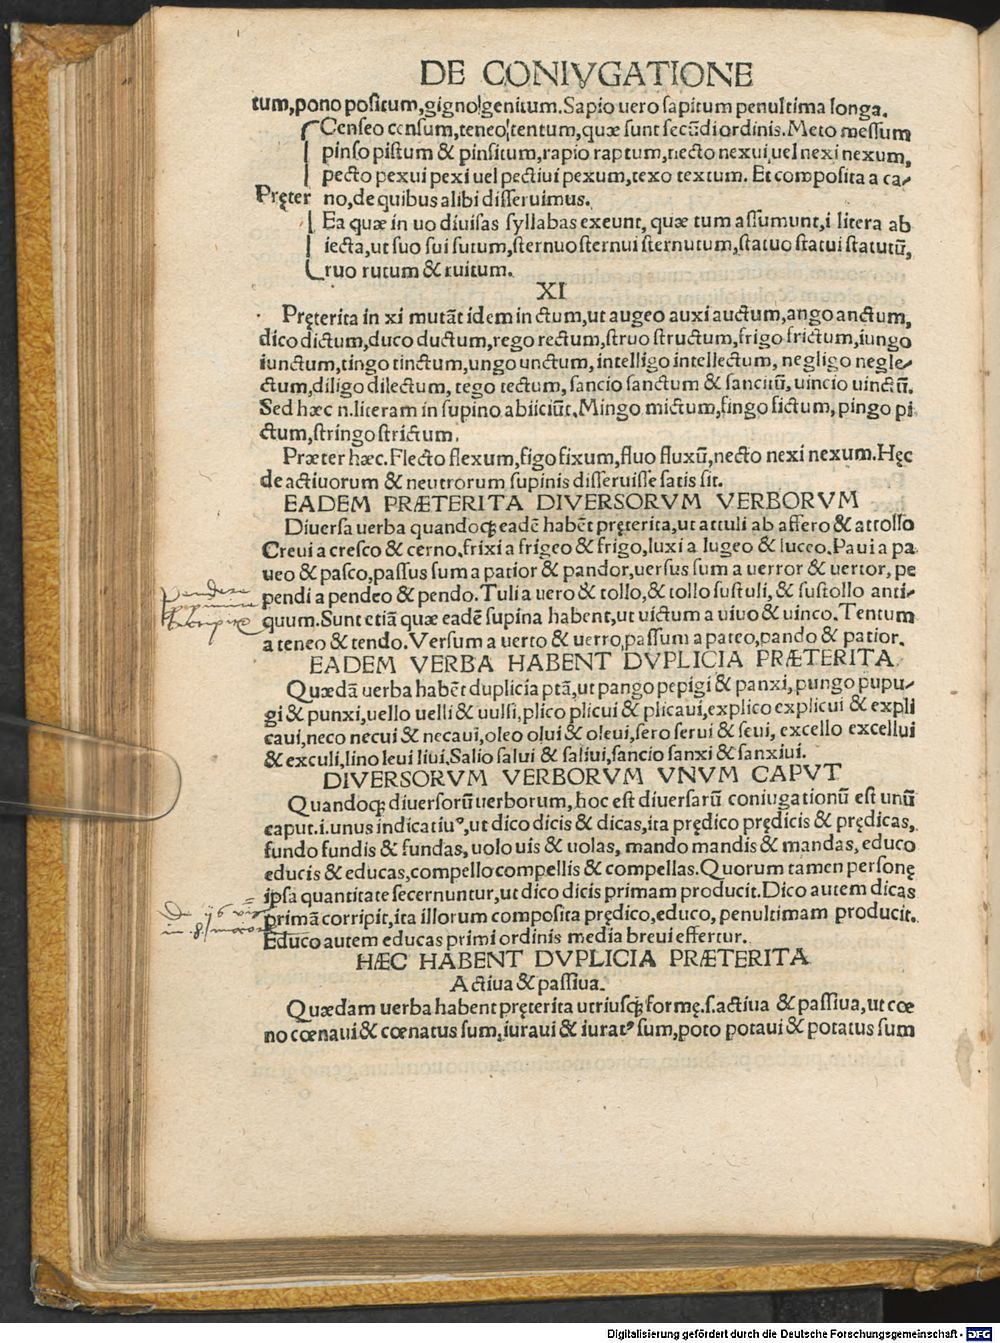 DE CONIVGATIONE
tum,pono positum,gigno genitum.Sapio uero sapitum penultima longa.
Censeo censum,teneo tentum,quæ sunt secūdi ordinis.Meto messum
pinso pistum & pinsitum,rapio raptum,necto nexui uel nexi nexum,
pecto pexui pexi uel pectiui pexum,texo textum. Et composita a ca-
Pręter no,de quibus alibi disseruimus.
Ea quæ in uo diuisas syllabas exeunt, quæ tum assumunt,i litera ab
iecta,ut suo sui sutum,sternuo sternui sternutum,statuo statui statutū,
ruo rutum & ruitum.
XI
Pręterita in xi mutāt idem in ctum,ut augeo auxi auctum,ango anctum,
dico dictum,duco ductum,rego rectum,struo structum,frigo frictum,iungo
iunctum,tingo tinctum,ungo unctum, intelligo intellectum, negligo negle-
ctum,diligo dilectum, tego tectum, sancio sanctum & sancitū, uincio uinctū.
Sed hæc n.literam in supino abiiciūt.Mingo mictum,fingo fictum, pingo pi
ctum,stringo strictum.
Præter hæc.Flecto flexum,figo fixum,fluo fluxū,necto nexi nexum.Hęc
de actiuorum & neutrorum supinis disseruisse satis sit.
EADEM PRÆTERITA DIVERSORVM VERBORVM
Diuersa uerba quandoq; eadē habēt pręterita,ut attuli ab affero & attollo
Creui a cresco & cerno.frixi a frigeo & frigo,luxi a lugeo & luceo.Paui a pa
ueo & pasco,passus sum a patior & pandor,uersus sum a uerror & uertor, pe
pendi a pendeo & pendo. Tuli a uero & tollo,& tollo sustuli, & sustollo anti-
quum.Sunt etiā quæ eadē supina habent,ut uictum a uiuo & uinco. Tentum
a teneo & tendo. Versum a uerto & uerro,passum a pateo,pando & patior.
EADEM VERBA HABENT DVPLICIA PRÆTERITA
Quædā uerba habēt duplicia ptā,ut pango pepigi & panxi, pungo pupu-
gi & punxi,uello uelli & uulsi,plico plicui & plicaui,explico explicui & expli
caui,neco necui & necaui,oleo olui & oleui,sero serui & seui, excello excellui
& exculi,lino leui liui.Salio salui & saliui,sancio sanxi & sanxiui.
DIVERSORVM VERBORVM VNVM CAPVT
Quandoq; diuersorū uerborum, hoc est diuersarū coniugationū est unū
caput.i.unus indicatiuꝰ,ut dico dicis & dicas,ita prędico prędicis & prędicas,
fundo fundis & fundas, uolo uis & uolas, mando mandis & mandas, educo
educis & educas,compello compellis & compellas.Quorum tamen personę
ipsa quantitate secernuntur,ut dico dicis primam producit.Dico autem dicas
primā corripit,ita illorum composita prędico,educo, penultimam producit.
Educo autem educas primi ordinis media breui effertur.
HÆC HABENT DVPLICIA PRÆTERITA
Actiua & passiua.
Quædam uerba habent pręterita utriusq; formę.s.actiua & passiua,ut cœ
no cœnaui & cœnatus sum,iuraui & iuratꝰ sum,poto potaui & potatus sum
Digitalisierung gefördert durch die Deutsche Forschungsgemeinschaft - DFG